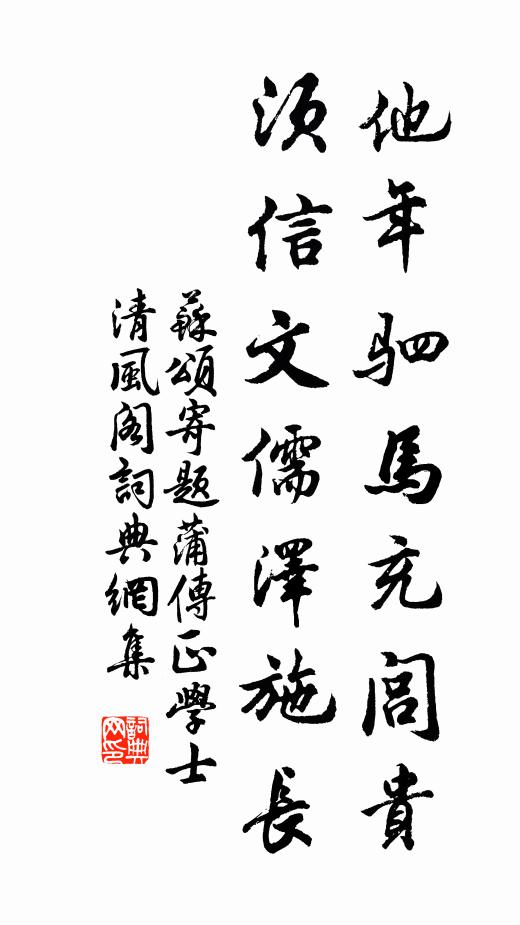 他年驷馬充閭貴
須信文儒澤施長
蘇頌寄題蒲傳正學士
清風阁詞典網集
詞典
网印